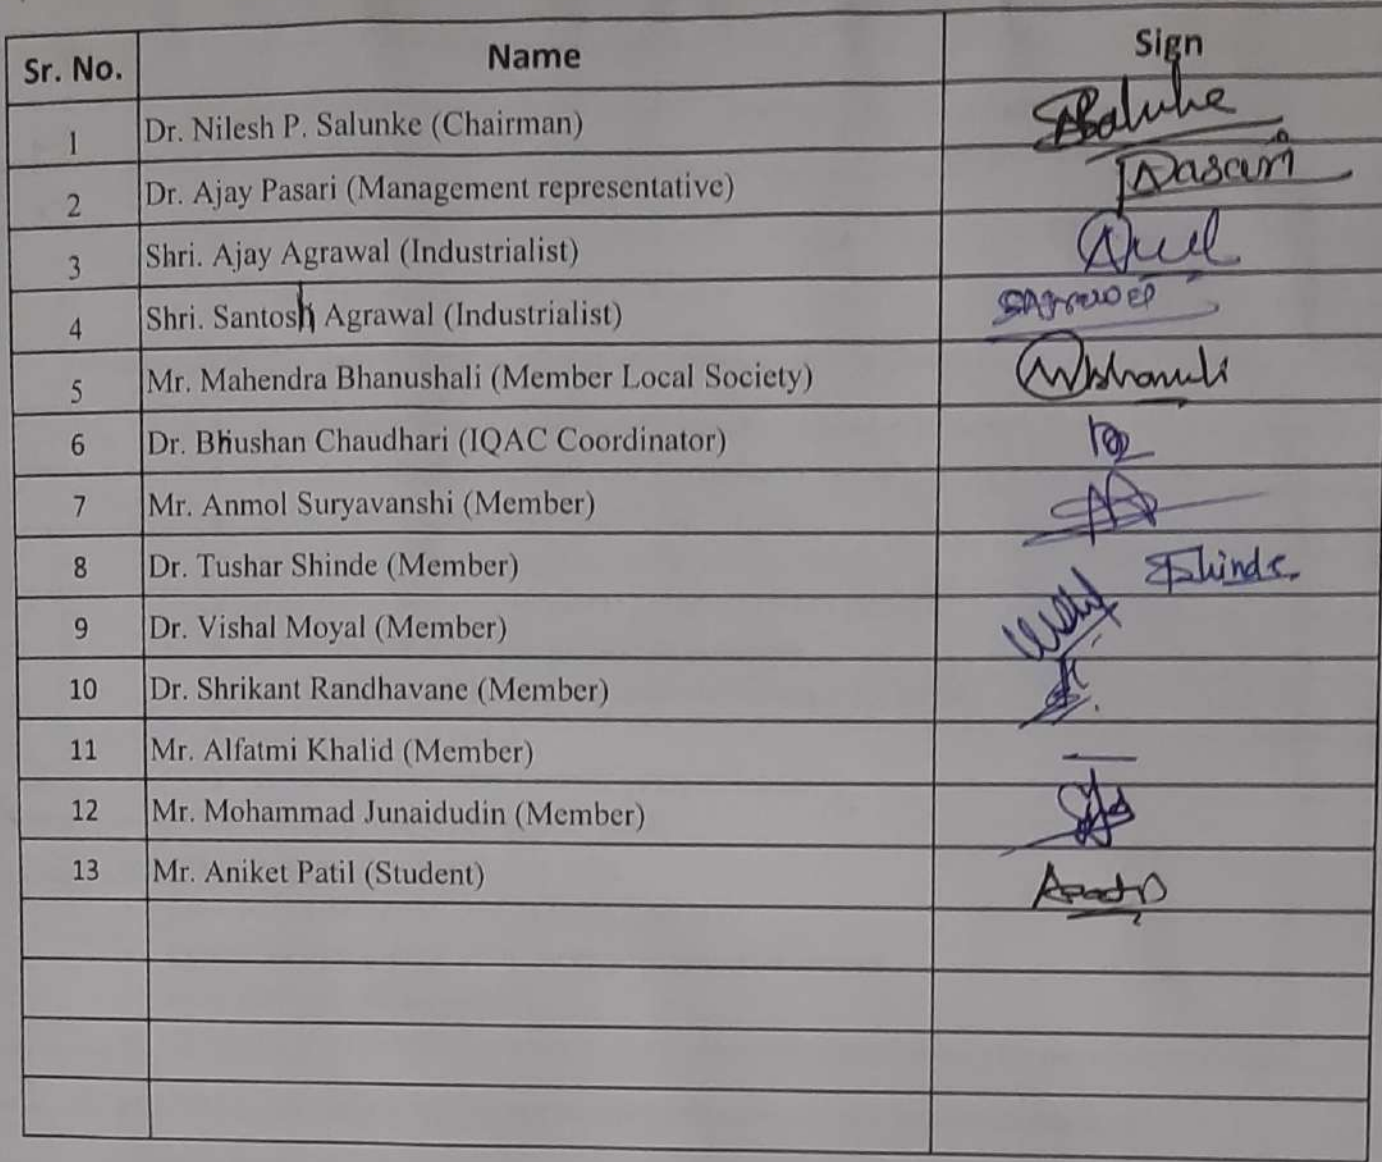 Sr. No. Name Sign
1 Dr. Nilesh P. Salunke (Chairman)
2 Dr. Ajay Pasari (Management representative) Pasari
3 Shri. Ajay Agrawal (Industrialist)
4 Shri. Santosh Agrawal (Industrialist)
5 Mr. Mahendra Bhanushali (Member Local Society)
6 Dr. Bhushan Chaudhari (IQAC Coordinator)
7 Mr. Anmol Suryavanshi (Member)
8 Dr. Tushar Shinde (Member) Shinde
9 Dr. Vishal Moyal (Member)
10 Dr. Shrikant Randhavane (Member)
11 Mr. Alfatmi Khalid (Member) —
12 Mr. Mohammad Junaidudin (Member)
13 Mr. Aniket Patil (Student)